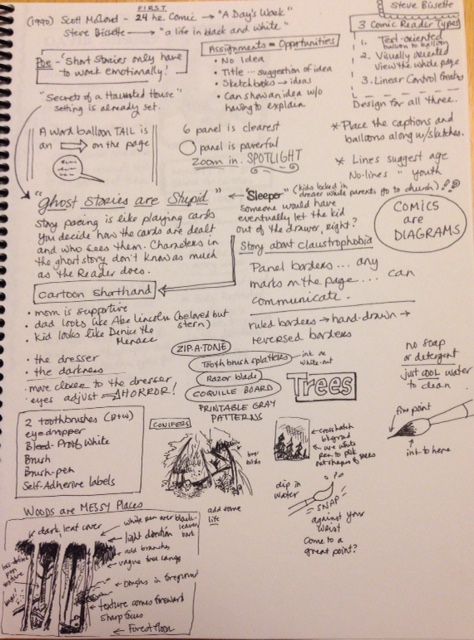 FIRST
(1990) Scott McCloud - 24 hr. Comic → "A Day's Work"
Steve Bissette → "a life in black and white"
Steve Bissette
Poe - "Short Stories only have
to work emotionally!
"Secrets of a Haunted House"
setting is already set.
A WORD BALLOON TAIL is
an → on the page
Assignments = Opportunities
• No Idea
• Title... suggestion of idea
• Sketchbooks → ideas
• Can show an idea w/o
having to explain
6 panel is clearest
panel is powerful
ZOOM in. SPOTLIGHT
3 Comic Reader Types
1. Text-oriented
balloon to balloon
2. Visually oriented
view the whole page
3. Linear Control
Design for all three.
* Place the captions and
balloons along w/sketches.
* Lines suggest age
No-lines " youth
"Ghost Stories are Stupid."
Story pacing is like playing cards
You decide how the cards are dealt
and who sees them. Characters in
the ghost story don't know as much
as the Reader does.
"Sleeper" (kids locked in
dresser while parents go to church)!?!
someone would have
eventually let the kid
out of the drawer, right?
Story about claustrophobia
COMICS
are
DIAGRAMS
Panel borders... any
marks on the page.... can
communicate.
ruled borders → hand-drawn →
reversed borders
Cartoon Shorthand
• mom is supportive
• dad looks like Abe Lincoln (beloved but
stern)
• kid looks like Denice the
Menace
• the dresser
• the darkness
• move closer to the dresser
• eyes adjust → HORROR!
ZIP-A-TONE
Toothbrush splatters
ink or
white-out
Razor blade
COQUILLE BOARD
PRINTABLE GRAY
PATTERNS
Trees
no soap
or detergent
just cool water
to clean
fine point
ink to here
2 toothbrushes (B+W)
eyedropper
Bleed-Proof White
Brush
Brush-pen
Self-Adhesive labels
CONIFERS
add some
life
crosshatch
bkground
use white
pen to pick
out shapes of trees
dip in
water
SNAP
against your
wrist
come to a
great point?
WOODS are MESSY PLACES
dark, leaf cover
white pen over black
leaves
bark
light direction
add branches
vague tree range
Boughs in foreground
texture comes forward
sharp focus
Forest floor